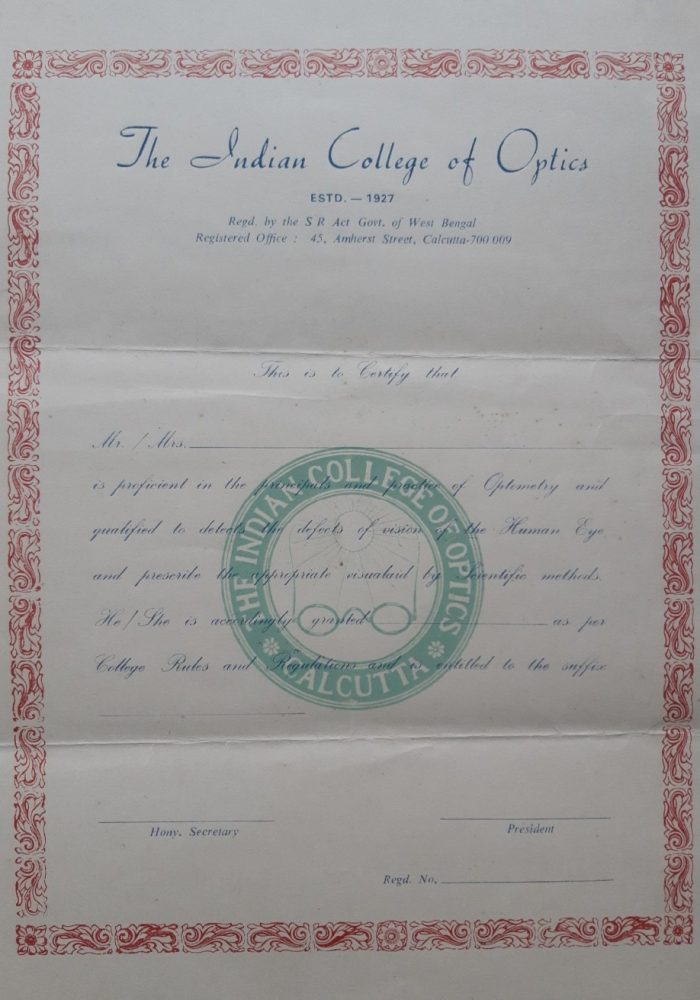 The Indian College of Optics
ESTD. — 1927
Regd. by the S R Act Govt. of West Bengal
Registered Office : 45, Amherst Street, Calcutta-700 009
This is to Certify that
Mr. / Mrs.
is proficient in the principals and practice of Optometry and
qualified to detects the defects of vision of the Human Eye
and prescribe the appropriate visualaid by Scientific methods.
He / She is accordingly granted as per
College Rules and Regulations and is entitled to the suffix
THE INDIAN COLLEGE OF OPTICS
CALCUTTA
Hony. Secretary
President
Regd. No.